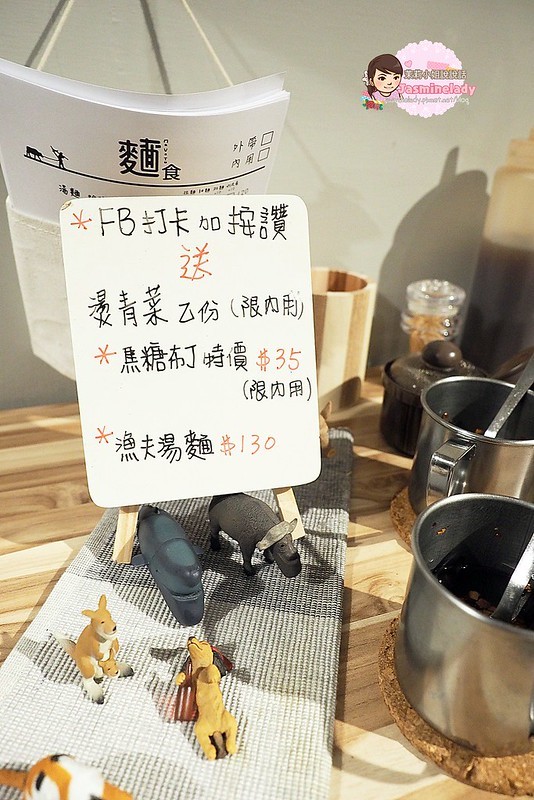 茉莉小姐說說話
Jasminelady
麵食
外帶□
內用□
湯麵
*FB打卡加按讚
送
燙青菜乙份(限內用)
*焦糖布丁特價$35
(限內用)
*漁夫湯麵$130